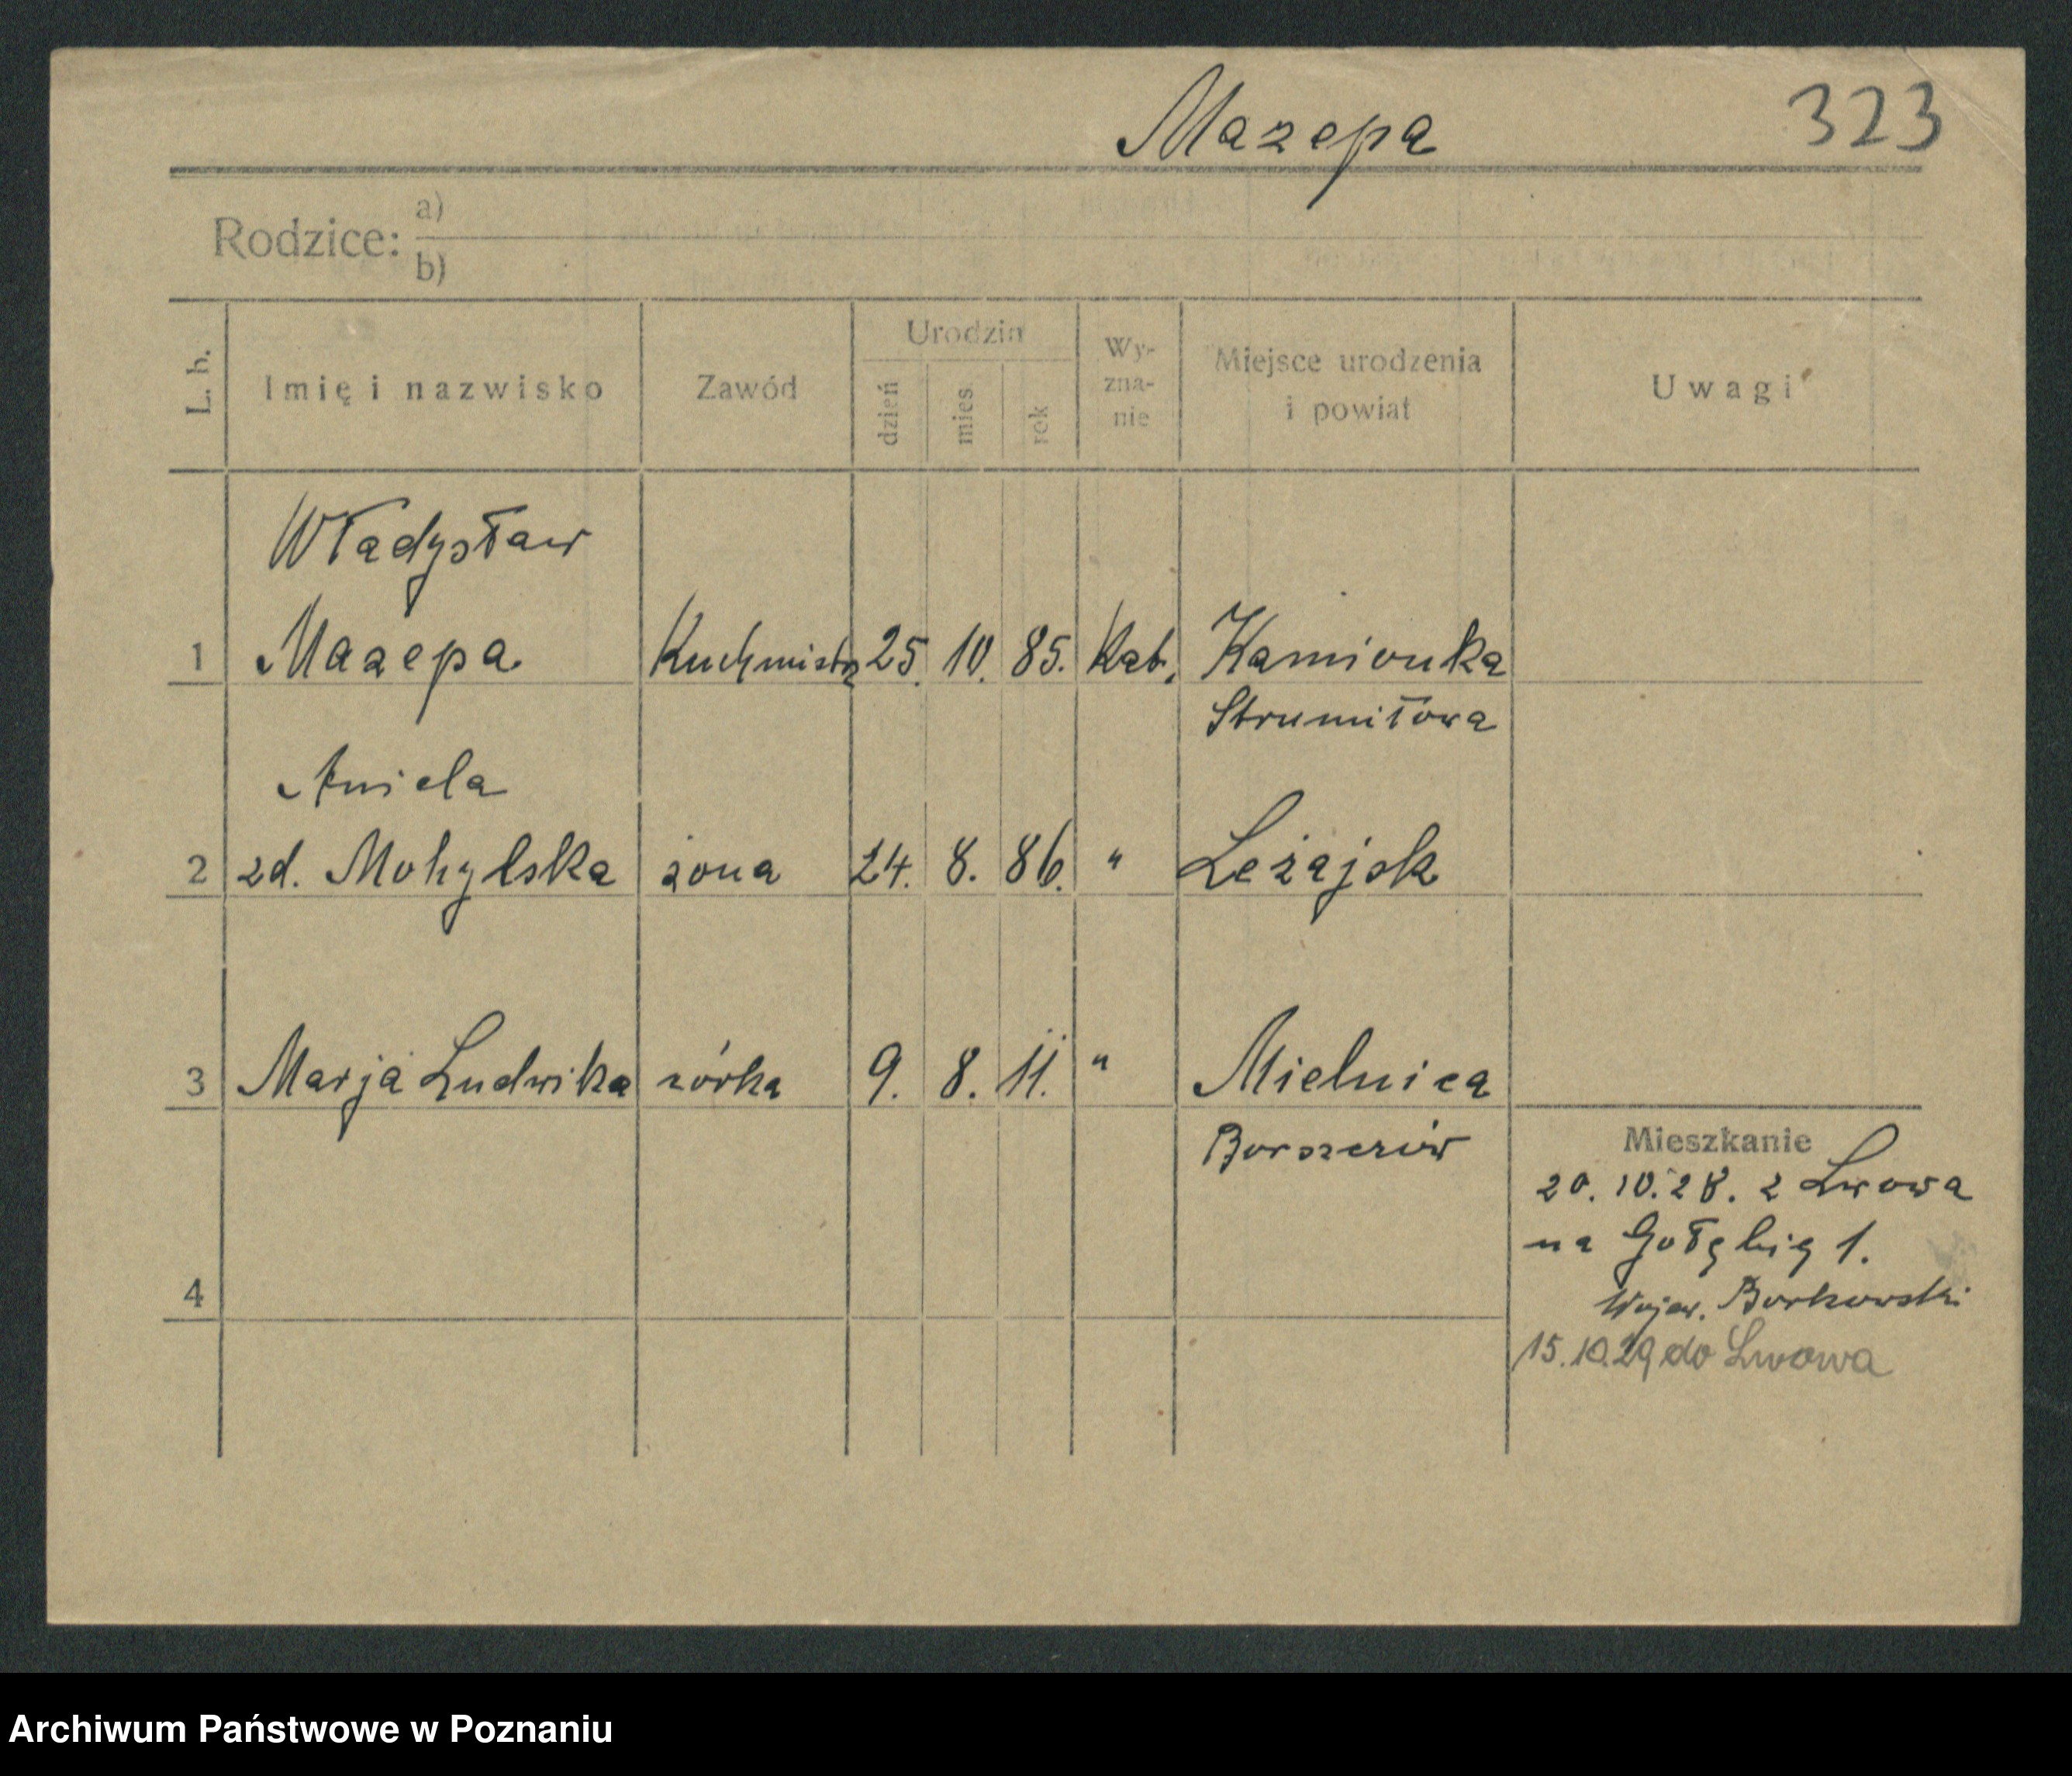 Mazepa
323
Rodzice: a)
b)
L. b. Imię i nazwisko Zawód Urodzin dzień mies. rok Wy-zna-nie Miejsce urodzenia i powiat Uwagi
Władysław
1 Mazepa Kuchmistrz 25. 10. 85. Kat. Kamionka
Strumiłowa
Aniela
2 zd. Mohylska żona 24. 8. 86. " Leżajsk
3 Marja Ludwika córka 9. 8. 11. " Mielnica
Borszczów
Mieszkanie
20. 10. 28. z Lwowa
na Gołębią 1.
Wojew. Borkowski
4
15.10.29 do Lwowa
Archiwum Państwowe w Poznaniu